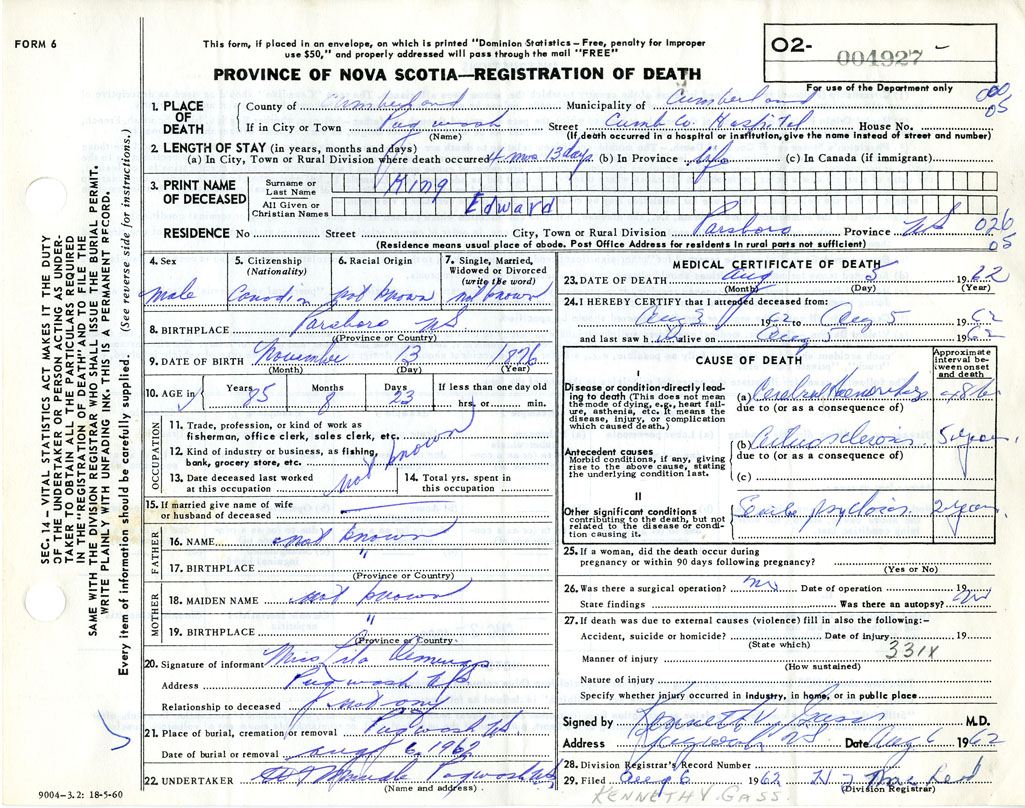 FORM 6
This form, if placed in an envelope, on which is printed "Dominion Statistics – Free, penalty for Improper
use $50," and properly addressed will pass through the mail "FREE"
O2- 004927
For use of the Department only
PROVINCE OF NOVA SCOTIA—REGISTRATION OF DEATH
1. PLACE OF DEATH
County of Cumberland Municipality of Cumberland 000
If in City or Town Pugwash Street Cumb Co. Hospital House No. 05
(Name) (If death occurred in a hospital or institution, give the name instead of street and number)
2. LENGTH OF STAY (in years, months and days)
(a) In City, Town or Rural Division where death occurred 4 mos 13 days (b) In Province life (c) In Canada (if immigrant)
3. PRINT NAME OF DECEASED
Surname or Last Name King
All Given or Christian Names Edward
RESIDENCE No Street City, Town or Rural Division Parsboro Province NS 026
(Residence means usual place of abode. Post Office Address for residents in rural parts not sufficient) 05
4. Sex male
5. Citizenship (Nationality) Canadian
6. Racial Origin not known
7. Single, Married, Widowed or Divorced (write the word) not known
8. BIRTHPLACE Parsboro NS
(Province or Country)
9. DATE OF BIRTH November 13 1876
(Month) (Day) (Year)
10. AGE in Years 85 Months 8 Days 23 If less than one day old hrs. or min.
OCCUPATION
11. Trade, profession, or kind of work as
fisherman, office clerk, sales clerk, etc.
12. Kind of industry or business, as fishing,
bank, grocery store, etc. not known
13. Date deceased last worked
at this occupation
14. Total yrs. spent in
this occupation
15. If married give name of wife
or husband of deceased
FATHER
16. NAME not known
17. BIRTHPLACE "
(Province or Country)
MOTHER
18. MAIDEN NAME not known
19. BIRTHPLACE "
(Province or Country)
20. Signature of informant Miss Lila Demings
Address Pugwash NS
Relationship to deceased not any
21. Place of burial, cremation or removal Pugwash NS
Date of burial or removal Aug 6, 1962
22. UNDERTAKER Pugwash NS
(Name and address)
MEDICAL CERTIFICATE OF DEATH
23. DATE OF DEATH Aug 5 1962
(Month) (Day) (Year)
24. I HEREBY CERTIFY that I attended deceased from:
Aug 3 1962 to Aug 5 1962
and last saw him alive on Aug 5 1962
CAUSE OF DEATH
Approximate interval between onset and death
I
Disease or condition directly leading to death (This does not mean the mode of dying, e.g., heart failure, asthenia, etc. It means the disease, injury, or complication which caused death.)
(a) Cerebral Hemorrhage 48 hr
due to (or as a consequence of)
Antecedent causes
Morbid conditions, if any, giving rise to the above cause, stating the underlying condition last.
(b) Arteriosclerosis 5 years
due to (or as a consequence of)
(c)
II
Other significant conditions
contributing to the death, but not related to the disease or condition causing it.
Senile psychosis 2 years
25. If a woman, did the death occur during
pregnancy or within 90 days following pregnancy?
(Yes or No)
26. Was there a surgical operation? no Date of operation 19
State findings Was there an autopsy? no
27. If death was due to external causes (violence) fill in also the following:-
Accident, suicide or homicide? Date of injury 19
(State which) 331X
Manner of injury
(How sustained)
Nature of injury
Specify whether injury occurred in industry, in home, or in public place
Signed by Kenneth V. Gass M.D.
Address Pugwash NS Date Aug 6 1962
28. Division Registrar's Record Number
29. Filed Aug 6 1962 H J MacLeod
(Division Registrar)
KENNETH V. GASS
9004-3.2: 18-5-60
SEC. 14 – VITAL STATISTICS ACT MAKES IT THE DUTY
OF THE UNDERTAKER OR PERSON ACTING AS UNDER-
TAKER TO OBTAIN ALL THE PARTICULARS REQUIRED
IN THE "REGISTRATION OF DEATH" AND TO FILE THE
SAME WITH THE DIVISION REGISTRAR WHO SHALL ISSUE THE BURIAL PERMIT.
WRITE PLAINLY WITH UNFADING INK. THIS IS A PERMANENT RECORD.
Every item of information should be carefully supplied. (See reverse side for instructions.)